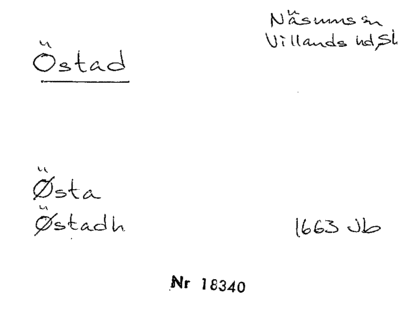 Östad
Näsums sn
Villands hd, Sk
Ø̈sta
Ø̈stadh
1663 Jb
Nr 18340